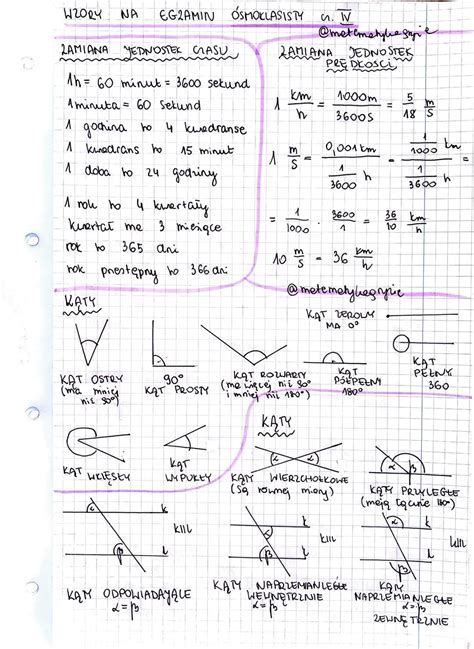 WZORY NA EGZAMIN ÓSMOKLASISTY cz. IV
@matematykagryzie
ZAMIANA JEDNOSTEK CZASU
1h = 60 minut = 3600 sekund
1 minuta = 60 sekund
1 godzina to 4 kwadranse
1 kwadrans to 15 minut
1 doba to 24 godziny
1 rok to 4 kwartały
kwartał ma 3 miesiące
rok to 365 dni
rok przestępny to 366 dni
ZAMIANA JEDNOSTEK
PRĘDKOŚCI
1 km/h = 1000m/3600s = 5/18 m/s
1 m/s = 0,001km / (1/3600 h) = (1/1000 km) / (1/3600 h) =
= 1/1000 · 3600/1 = 36/10 km/h
10 m/s = 36 km/h
@matematykagryzie
KĄTY
KĄT ZEROWY
MA 0°
KĄT OSTRY
(ma mniej
niż 90°)
90°
KĄT PROSTY
KĄT ROZWARTY
(ma więcej niż 90°
i mniej niż 180°)
KĄT
PÓŁPEŁNY
180°
KĄT
PEŁNY
360
KĄT WKLĘSŁY
KĄT
WYPUKŁY
KĄTY
α α
KĄTY WIERZCHOŁKOWE
(są równej miary)
α β
KĄTY PRZYLEGŁE
(mają łącznie 180°)
α k
k||l
β l
KĄTY ODPOWIADAJĄCE
α = β
k
α
k||l
β l
KĄTY NAPRZEMIANLEGŁE
WEWNĘTRZNIE
α = β
α k
k||l
l
β
KĄTY
NAPRZEMIANLEGŁE
α = β
ZEWNĘTRZNIE